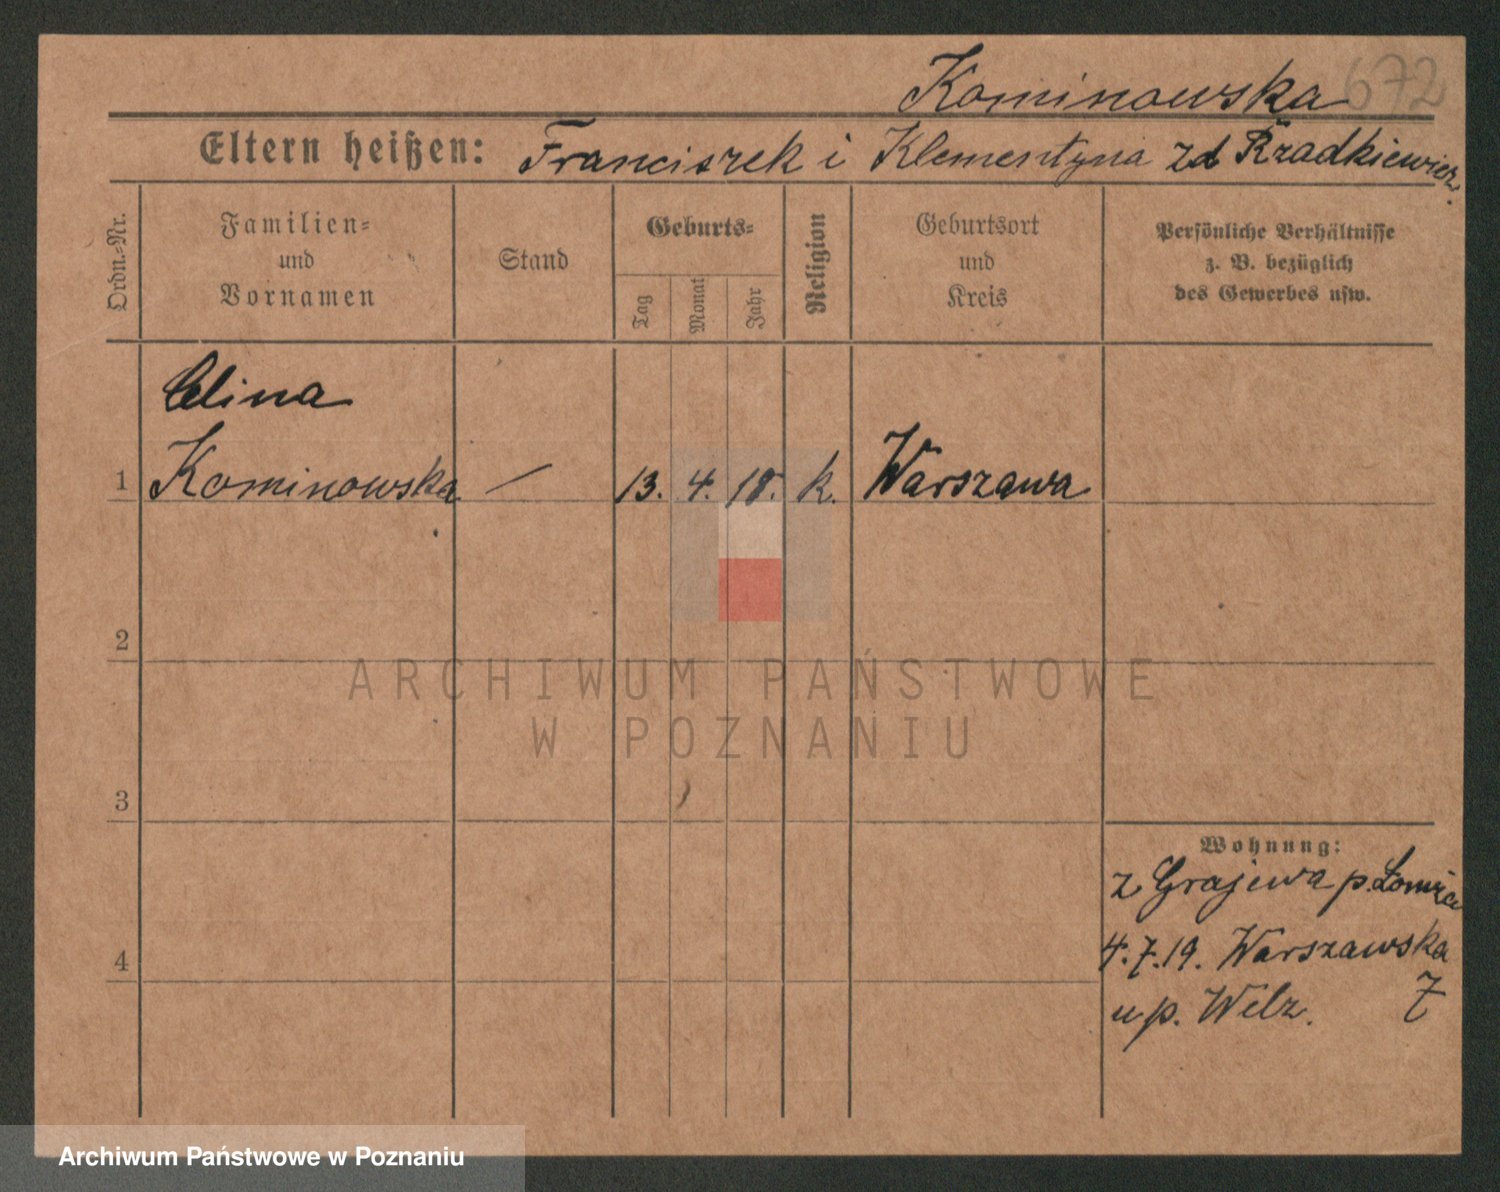 Kominowska 672
Eltern heißen: Franciszek i Klementyna zd Rzadkiewicz.
Ordn.-Nr.
Familien-
und
Vornamen
Stand
Geburts-
Tag
Monat
Jahr
Religion
Geburtsort
und
Kreis
Persönliche Verhältnisse
z. B. bezüglich
des Gewerbes usw.
Celina
1 Kominowska — 13. 4. 18. k. Warszawa
2
ARCHIWUM PAŃSTWOWE
W POZNANIU
3
Wohnung:
z Grajewa p. Łomża
4 4.7.19. Warszawska
u p. Welz. 7
Archiwum Państwowe w Poznaniu